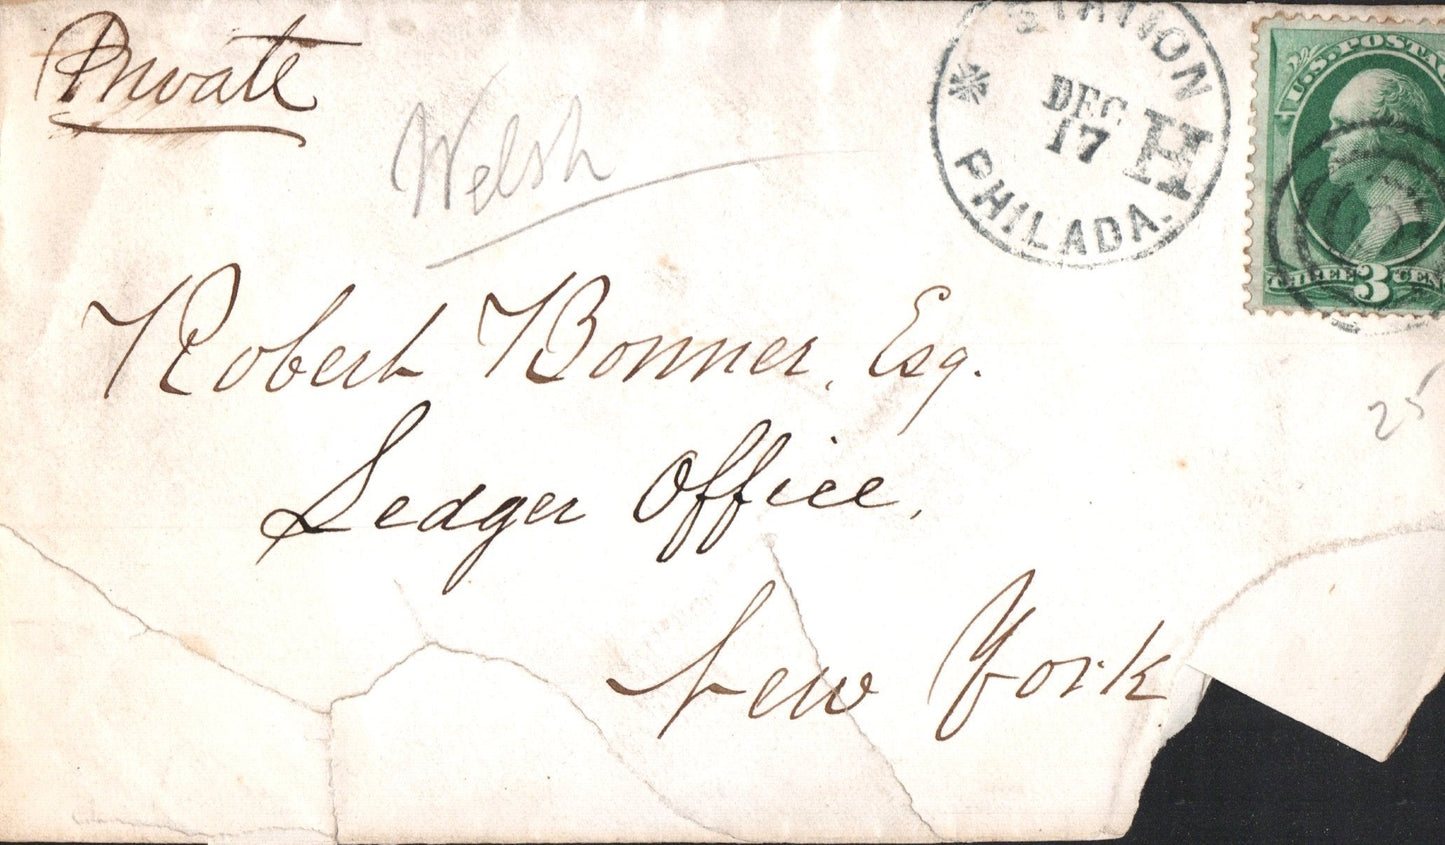 Private
Welsh
STATION H
PHILADA.
DEC
17
U.S. POSTA
THREE 3 CEN
Robert Bonner, Esq.
25
Ledger Office,
New York